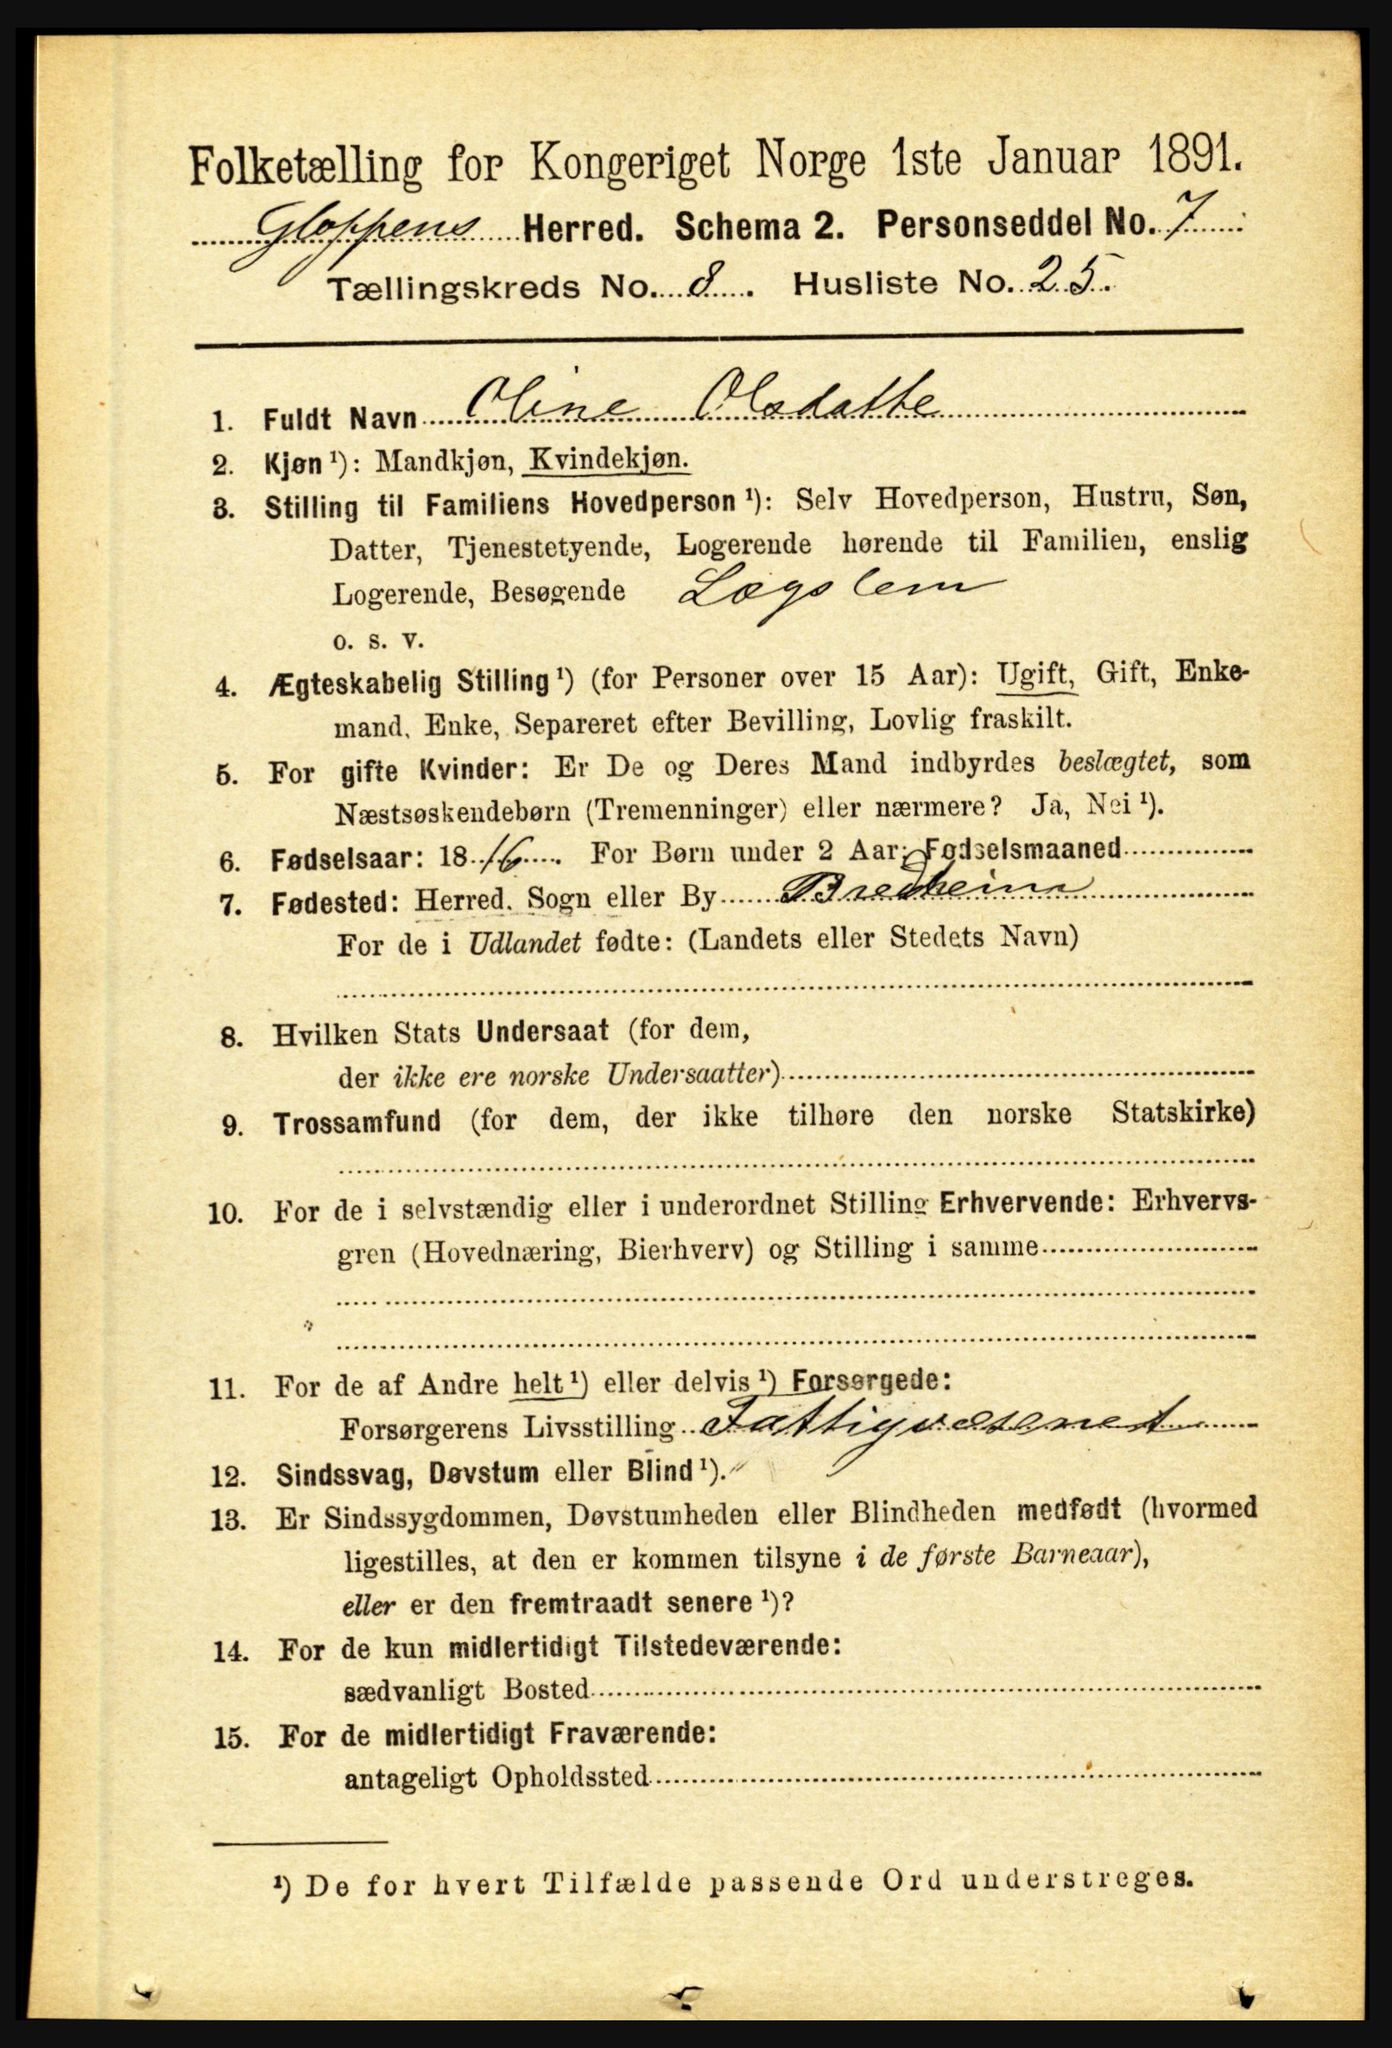 Folketælling for Kongeriget Norge 1ste Januar 1891.
Gloppens Herred. Schema 2. Personseddel No. 7
Tællingskreds No. 8. Husliste No. 25.
1. Fuldt Navn Oline Olsdatte
2. Kjøn ¹): Mandkjøn, Kvindekjøn.
3. Stilling til Familiens Hovedperson ¹): Selv Hovedperson, Hustru, Søn,
Datter, Tjenestetyende, Logerende hørende til Familien, enslig
Logerende, Besøgende Lægslem
o. s. v.
4. Ægteskabelig Stilling ¹) (for Personer over 15 Aar): Ugift, Gift, Enke-
mand, Enke, Separeret efter Bevilling, Lovlig fraskilt.
5. For gifte Kvinder: Er De og Deres Mand indbyrdes beslægtet, som
Næstsøskendebørn (Tremenninger) eller nærmere? Ja, Nei ¹).
6. Fødselsaar: 1816. For Børn under 2 Aar: Fødselsmaaned
7. Fødested: Herred, Sogn eller By Bredheim
For de i Udlandet fødte: (Landets eller Stedets Navn)
8. Hvilken Stats Undersaat (for dem,
der ikke ere norske Undersaatter)
9. Trossamfund (for dem, der ikke tilhøre den norske Statskirke)
10. For de i selvstændig eller i underordnet Stilling Erhvervende: Erhvervs-
gren (Hovednæring, Bierhverv) og Stilling i samme
11. For de af Andre helt ¹) eller delvis ¹) Forsørgede:
Forsørgerens Livsstilling Fattigvæsenet
12. Sindssvag, Døvstum eller Blind ¹).
13. Er Sindssygdommen, Døvstumheden eller Blindheden medfødt (hvormed
ligestilles, at den er kommen tilsyne i de første Barneaar),
eller er den fremtraadt senere ¹)?
14. For de kun midlertidigt Tilstedeværende:
sædvanligt Bosted
15. For de midlertidigt Fraværende:
antageligt Opholdssted
¹) De for hvert Tilfælde passende Ord understreges.